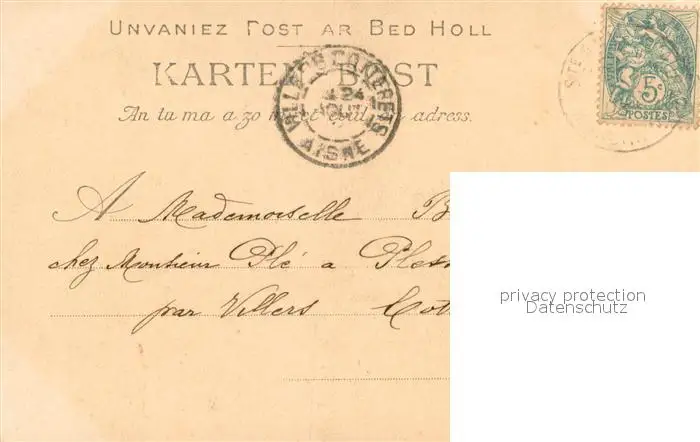 UNVANIEZ POST AR BED HOLL
KARTEN BOST
An tu ma a zo adress.
VILLERS COTTERETS
24
AISNE
5c
POSTES
A Mademoiselle B
chez Monsieur Plé a Pless
par Villers Cott
privacy protection
Datenschutz